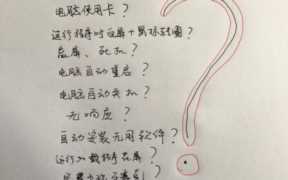 电脑使用卡？
运行程序时反屏+鼠标转圈？
蓝屏、死机？
电脑自动重启？
电脑自动关机？
无响应？
自动安装无用软件？
运行 程序
？